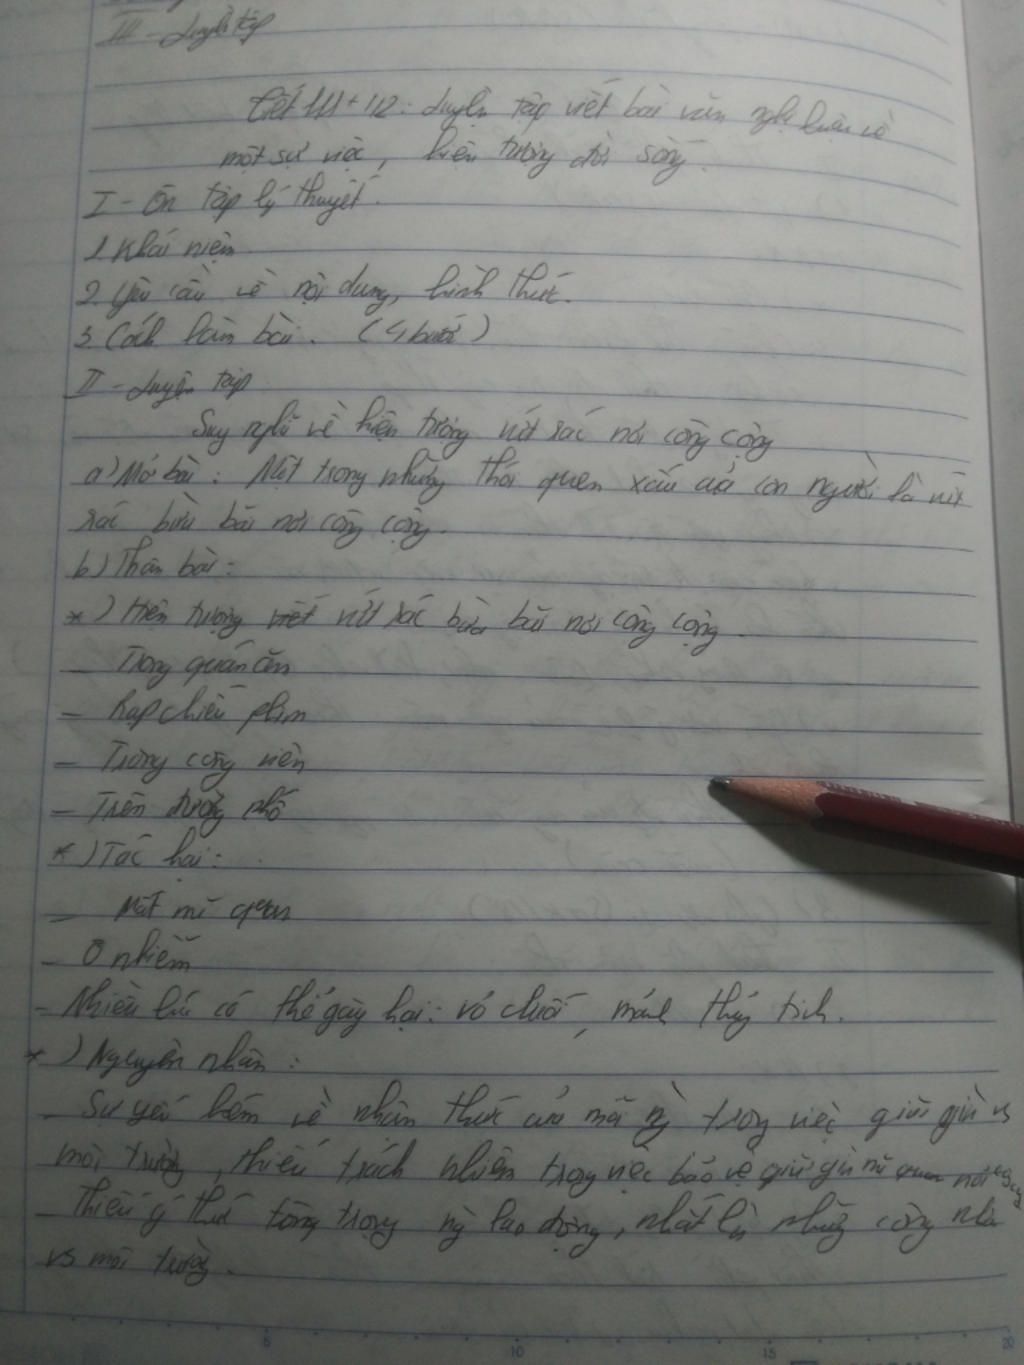 III - Luyện tập
Tiết 111 + 112: Luyện tập viết bài văn nghị luận về
một sự việc, hiện tượng đời sống.
I - Ôn tập lý thuyết.
1. Khái niệm
2. Yêu cầu về nội dung, hình thức.
3. Cách làm bài. (4 bước)
II - Luyện tập
Suy nghĩ về hiện tượng vứt rác nơi công cộng
a) Mở bài: Một trong những thói quen xấu của con người là vứt
rác bừa bãi nơi công cộng.
b) Thân bài:
*) Hiện tượng vứt rác bừa bãi nơi công cộng.
- Trong quán ăn
- Rạp chiếu phim
- Trong công viên
- Trên đường phố
*) Tác hại:
- Mất mĩ quan
- Ô nhiễm
- Nhiều lúc có thể gây hại: vỏ chuối, mảnh thủy tinh.
*) Nguyên nhân:
- Sự yếu kém về nhận thức của mỗi ng` trong việc giữ gìn vs
môi trường, thiếu trách nhiệm trong việc bảo vệ giữ gìn mĩ quan nơi
- Thiếu ý thức tôn trọng ng` lao động, nhất là những công nhân
vs môi trường.